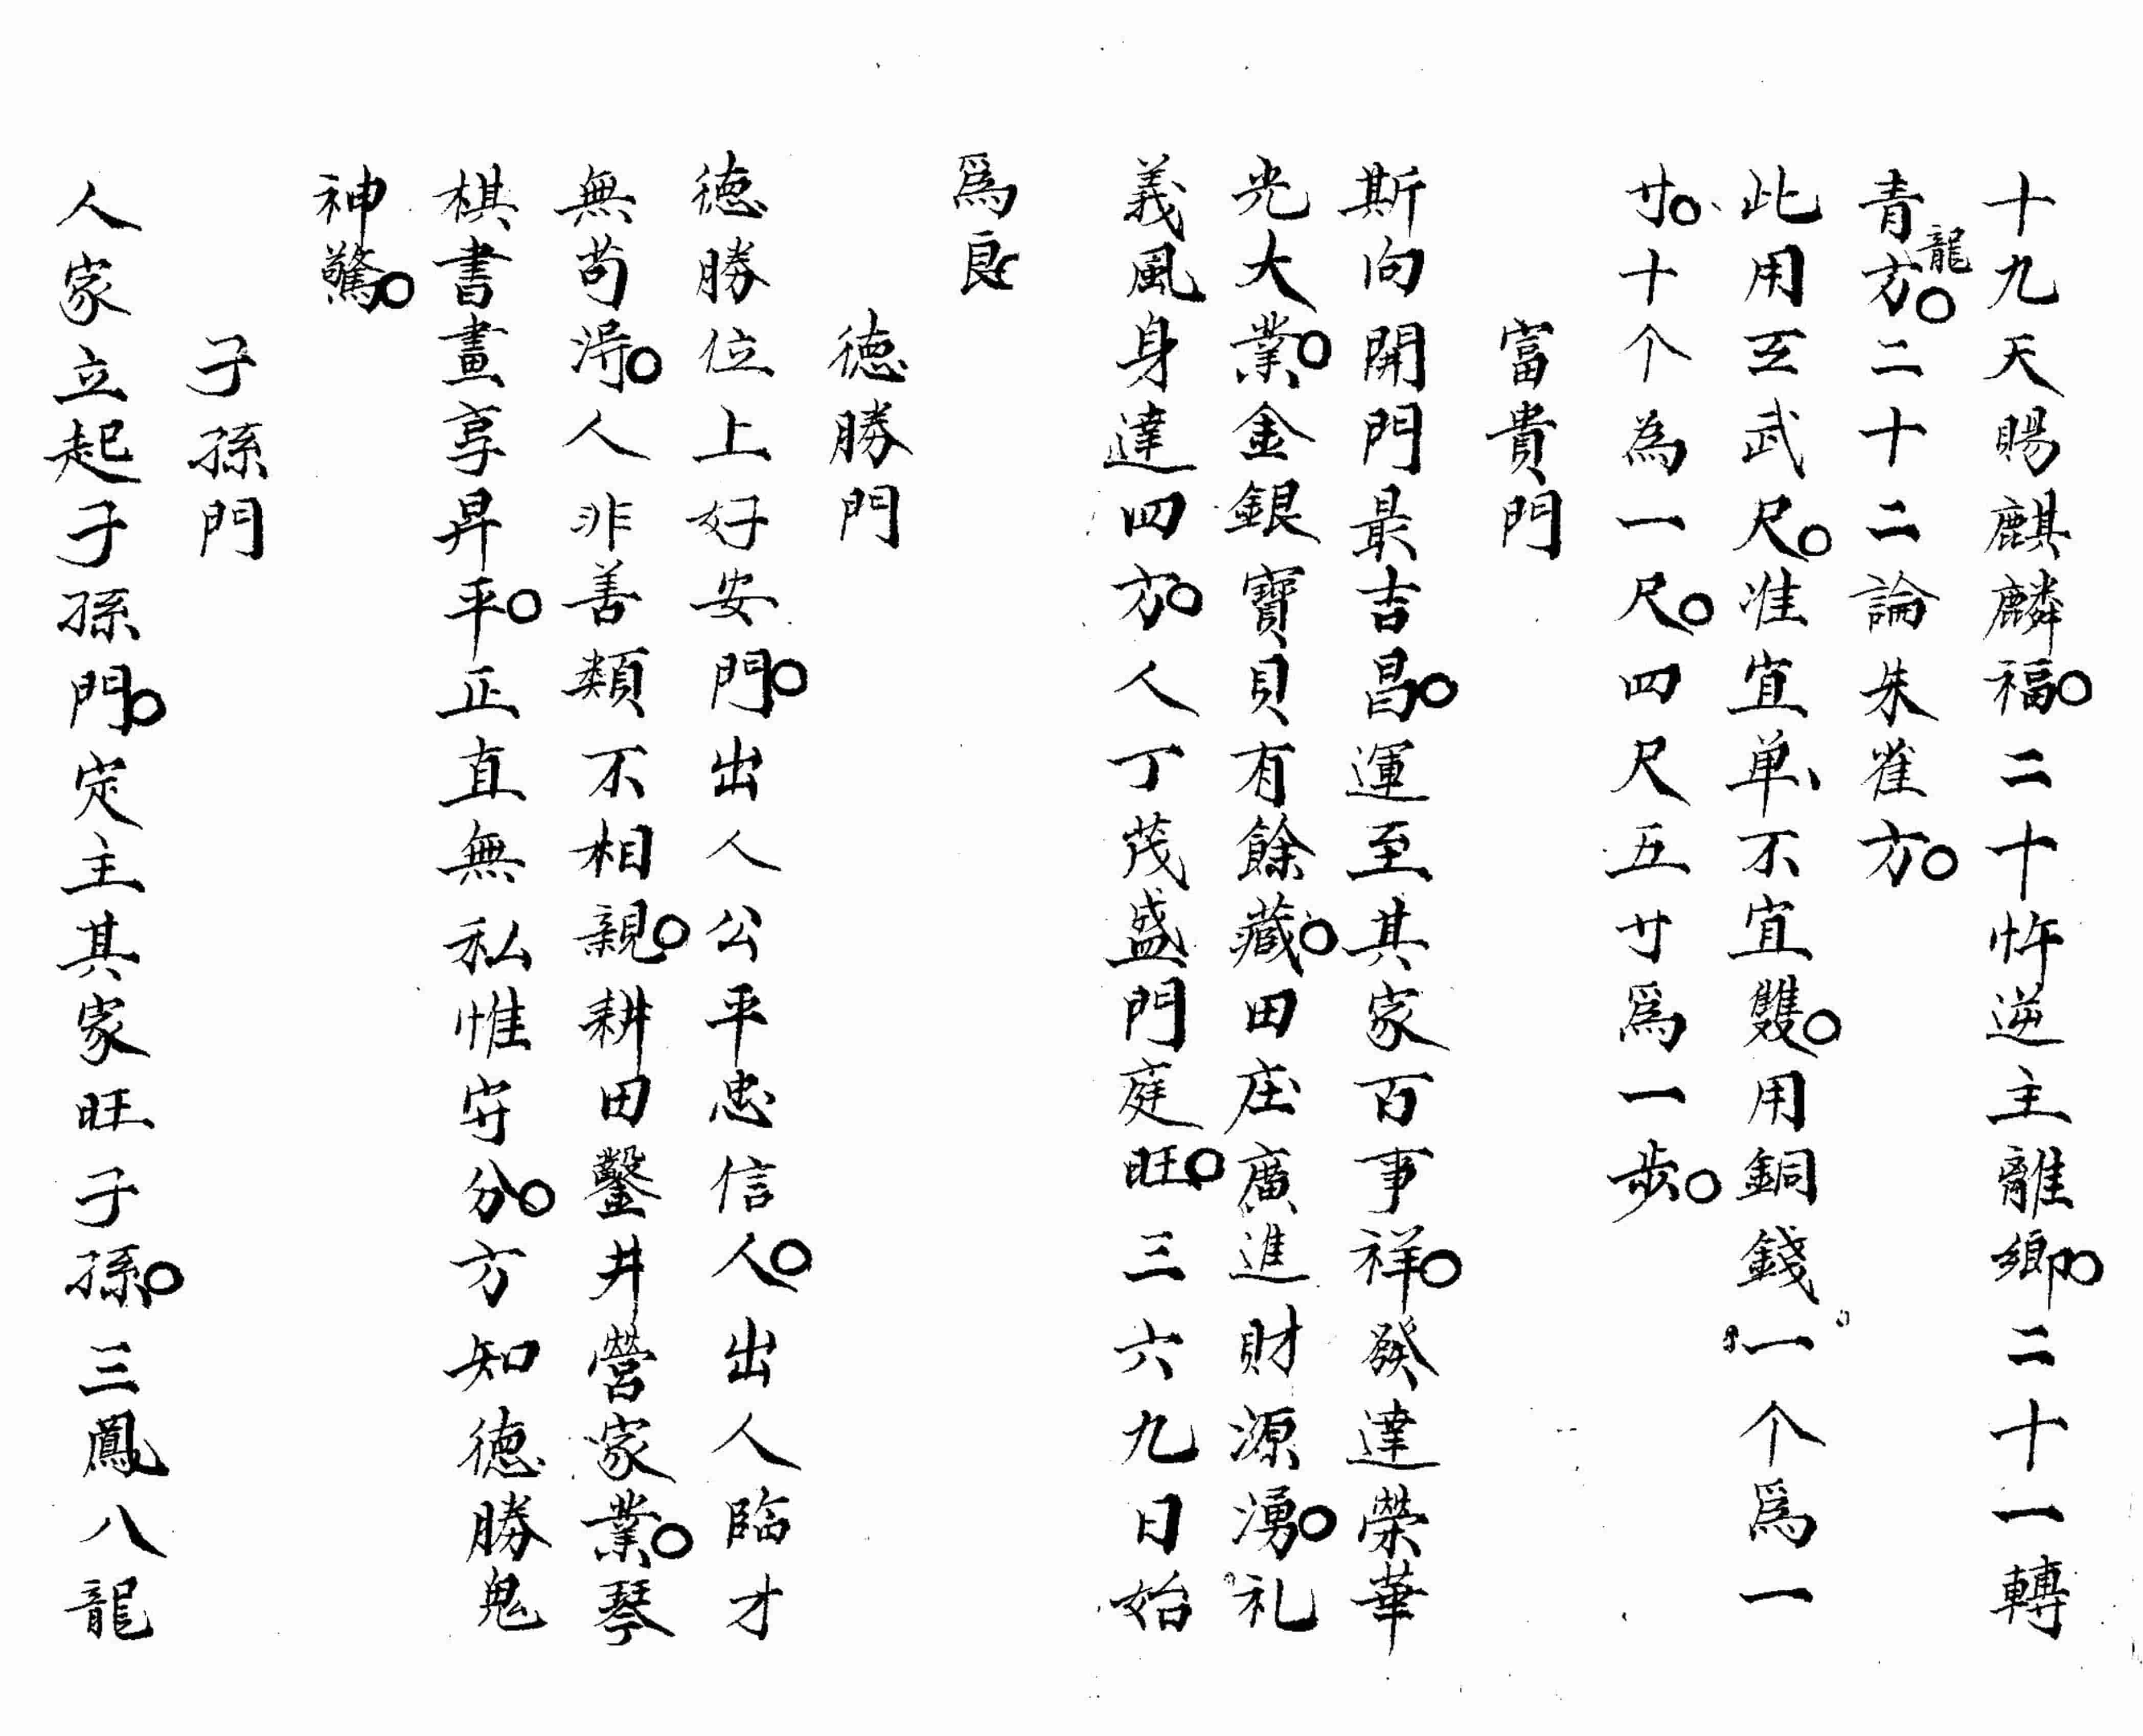 十九天賜麒麟福。二十忤逆主離鄉。二十一轉
青龍方。二十二論朱雀方。
此用玄武尺。准宜单不宜雙。用銅錢一个爲一
寸。十个為一尺。四尺五寸爲一步。
富貴門
斯向開門最吉昌。運至其家百事祥。發達榮華
光大業。金銀寶貝有餘藏。田庄廣進財源湧。礼
義風身達四方。人丁茂盛門庭旺。三六九日始
爲良
德勝門
德勝位上好安門。出人公平忠信人。出人臨才
無苟淂。人非善類不相親。耕田鑿井營家業。琴
棋書畫享昇平。正直無私惟安分。方知德勝鬼
神驚。
子孫門
人家立起子孫門。定主其家旺子孫。三鳳八龍